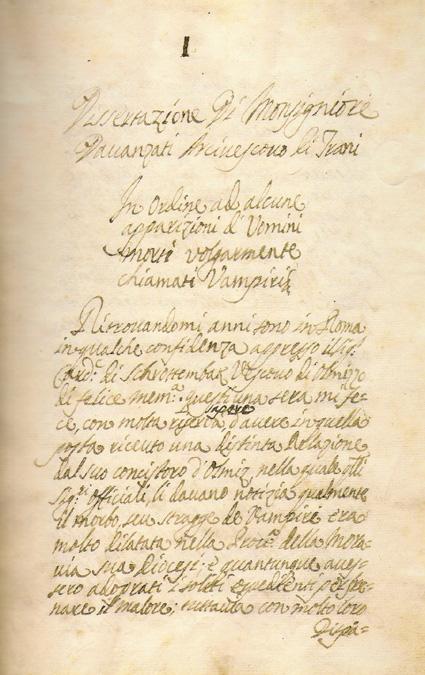 I
Dissertazione Di Monsigniore
Davanzati Arcivescovo di Trani
In Ordine ad alcune
apparizioni d'Uomini
morti volgarmente
chiamati Vampiri
Ritrovandomi, anni sono in Roma
in qualche confidenza appresso il Sig.r
Card.e di Schrottembak Vescovo di Olmizzo
di felice mem.a questi una sera mi fe-
sapere
ce, con molta riserva, d'avere in quella
posta ricevuto una distinta Relazione
dal suo concistoro d'Olmiz, nella quale
Sig.ri officiali, li davano notizia qualmente
il morbo, seu stragge de Vampiri era
molto dilatata nella Provi.a della Mora-
via sua Diocesi; è quantunque aves-
sero adoprati i soliti espedienti per
nare il malore; tuttavia con molto loro
Dispia=